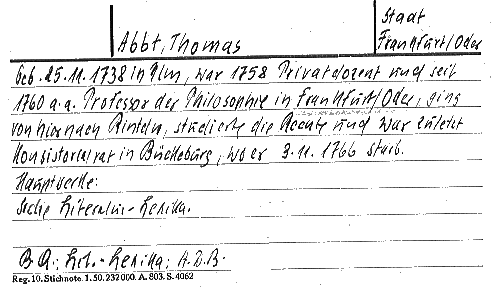 Staat
Abbt, Thomas Frankfurt/Oder
Geb. 25.11.1738 in Ulm, war 1758 Privatdozent und seit
1760 a.a. Professor der Philosophie in Frankfurt/Oder, ging
von hier nach Rinteln, studierte die Rechte und war zuletzt
Konsistorialrat in Bückeburg, wo er 3.11.1766 starb.
Hauptwerke:
Siehe Literatur-Lexika.
B.Q.: Lit.-Lexika; A.D.B.
Reg. 10. Stichnote. 1. 50. 232000. A. 803. S. 4062